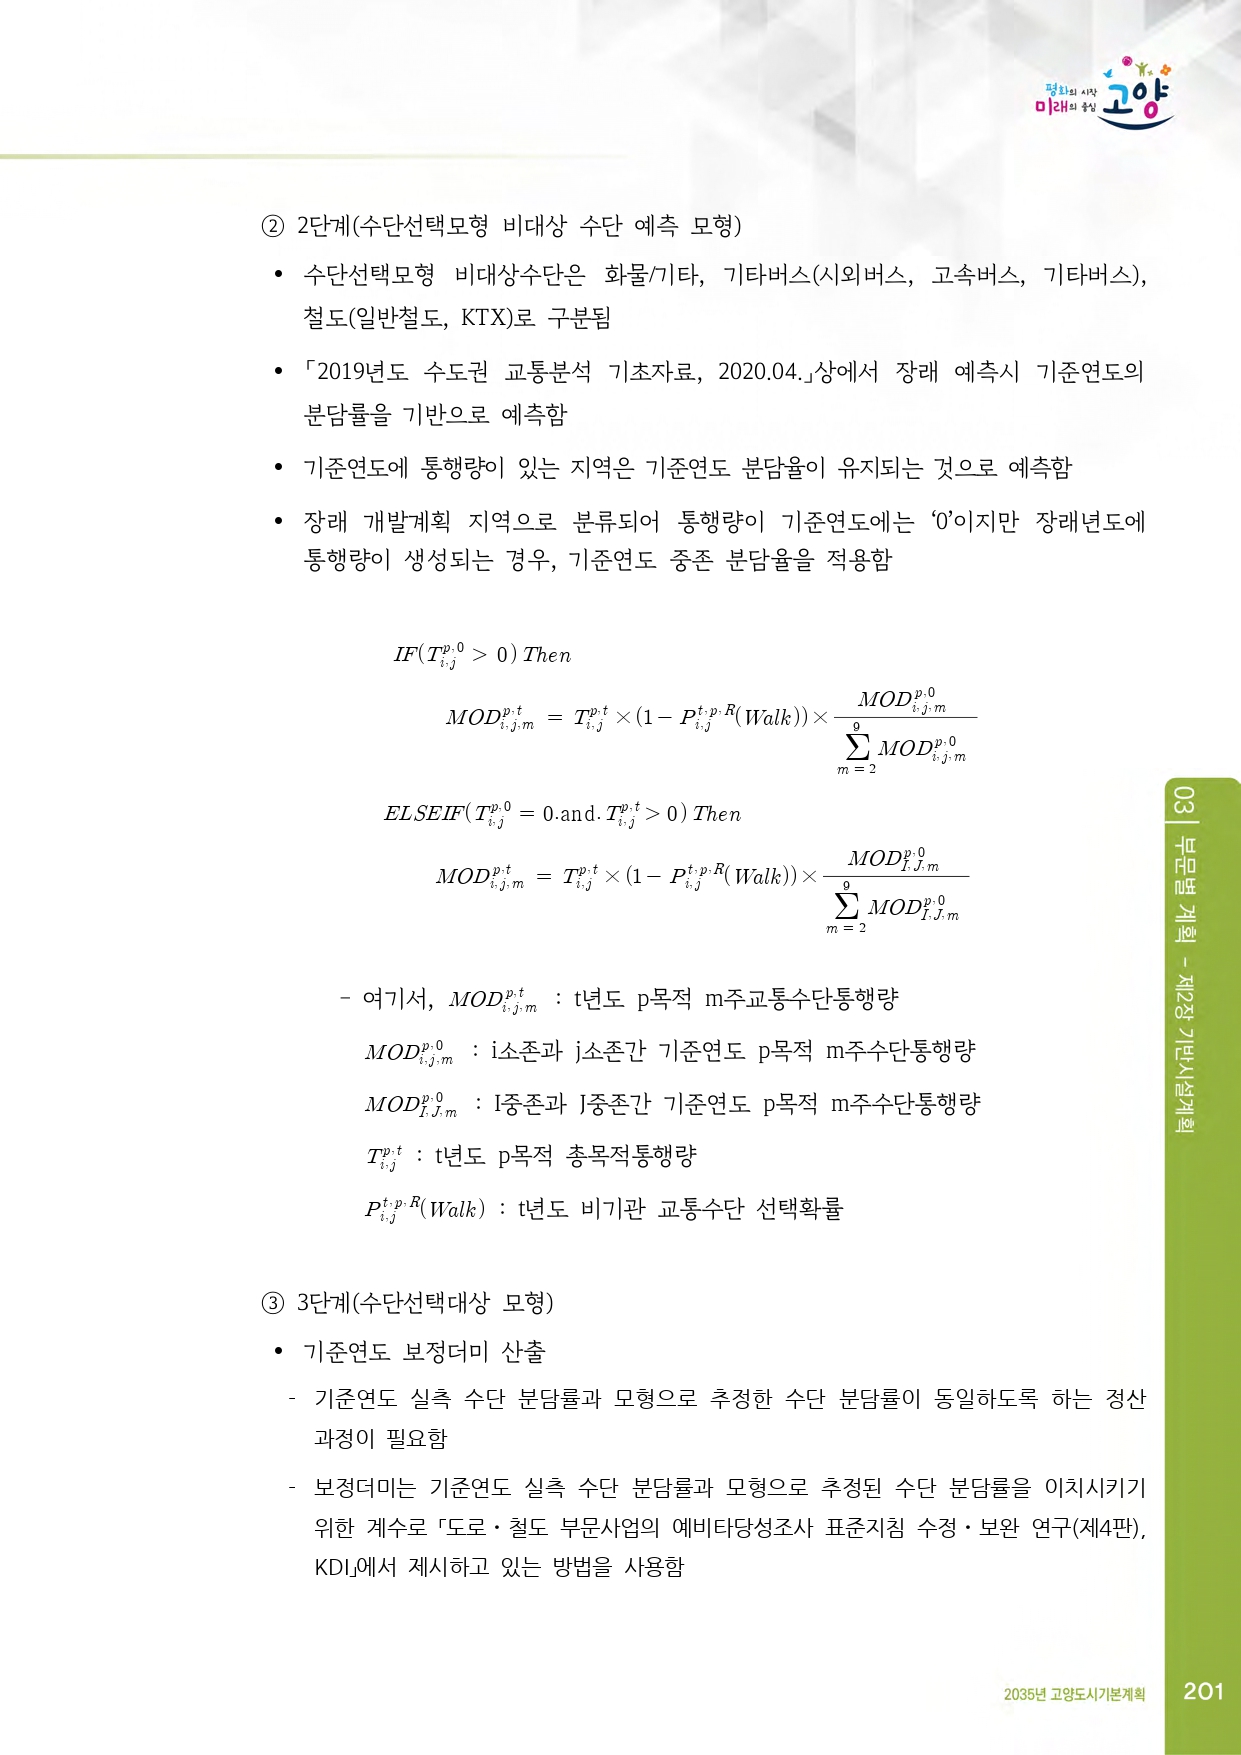 평화의 시작
미래의 중심 고양
② 2단계(수단선택모형 비대상 수단 예측 모형)
• 수단선택모형 비대상수단은 화물/기타, 기타버스(시외버스, 고속버스, 기타버스),
철도(일반철도, KTX)로 구분됨
• 「2019년도 수도권 교통분석 기초자료, 2020.04.」상에서 장래 예측시 기준연도의
분담률을 기반으로 예측함
• 기준연도에 통행량이 있는 지역은 기준연도 분담율이 유지되는 것으로 예측함
• 장래 개발계획 지역으로 분류되어 통행량이 기준연도에는 ‘0’이지만 장래년도에
통행량이 생성되는 경우, 기준연도 중존 분담율을 적용함
IF(T_{i,j}^{p,0} > 0) Then
MOD_{i,j,m}^{p,t} = T_{i,j}^{p,t} × (1 − P_{i,j}^{t,p,R}(Walk)) × \frac{MOD_{i,j,m}^{p,0}}{\sum_{m=2}^{9} MOD_{i,j,m}^{p,0}}
ELSEIF(T_{i,j}^{p,0} = 0.and. T_{i,j}^{p,t} > 0) Then
MOD_{i,j,m}^{p,t} = T_{i,j}^{p,t} × (1 − P_{i,j}^{t,p,R}(Walk)) × \frac{MOD_{I,J,m}^{p,0}}{\sum_{m=2}^{9} MOD_{I,J,m}^{p,0}}
- 여기서, MOD_{i,j,m}^{p,t} : t년도 p목적 m주교통수단통행량
MOD_{i,j,m}^{p,0} : i소존과 j소존간 기준연도 p목적 m주수단통행량
MOD_{I,J,m}^{p,0} : I중존과 J중존간 기준연도 p목적 m주수단통행량
T_{i,j}^{p,t} : t년도 p목적 총목적통행량
P_{i,j}^{t,p,R}(Walk) : t년도 비기관 교통수단 선택확률
③ 3단계(수단선택대상 모형)
• 기준연도 보정더미 산출
- 기준연도 실측 수단 분담률과 모형으로 추정한 수단 분담률이 동일하도록 하는 정산
과정이 필요함
- 보정더미는 기준연도 실측 수단 분담률과 모형으로 추정된 수단 분담률을 이치시키기
위한 계수로 「도로・철도 부문사업의 예비타당성조사 표준지침 수정・보완 연구(제4판),
KDI」에서 제시하고 있는 방법을 사용함
03 | 부문별 계획 - 제2장 기반시설계획
2035년 고양도시기본계획 201